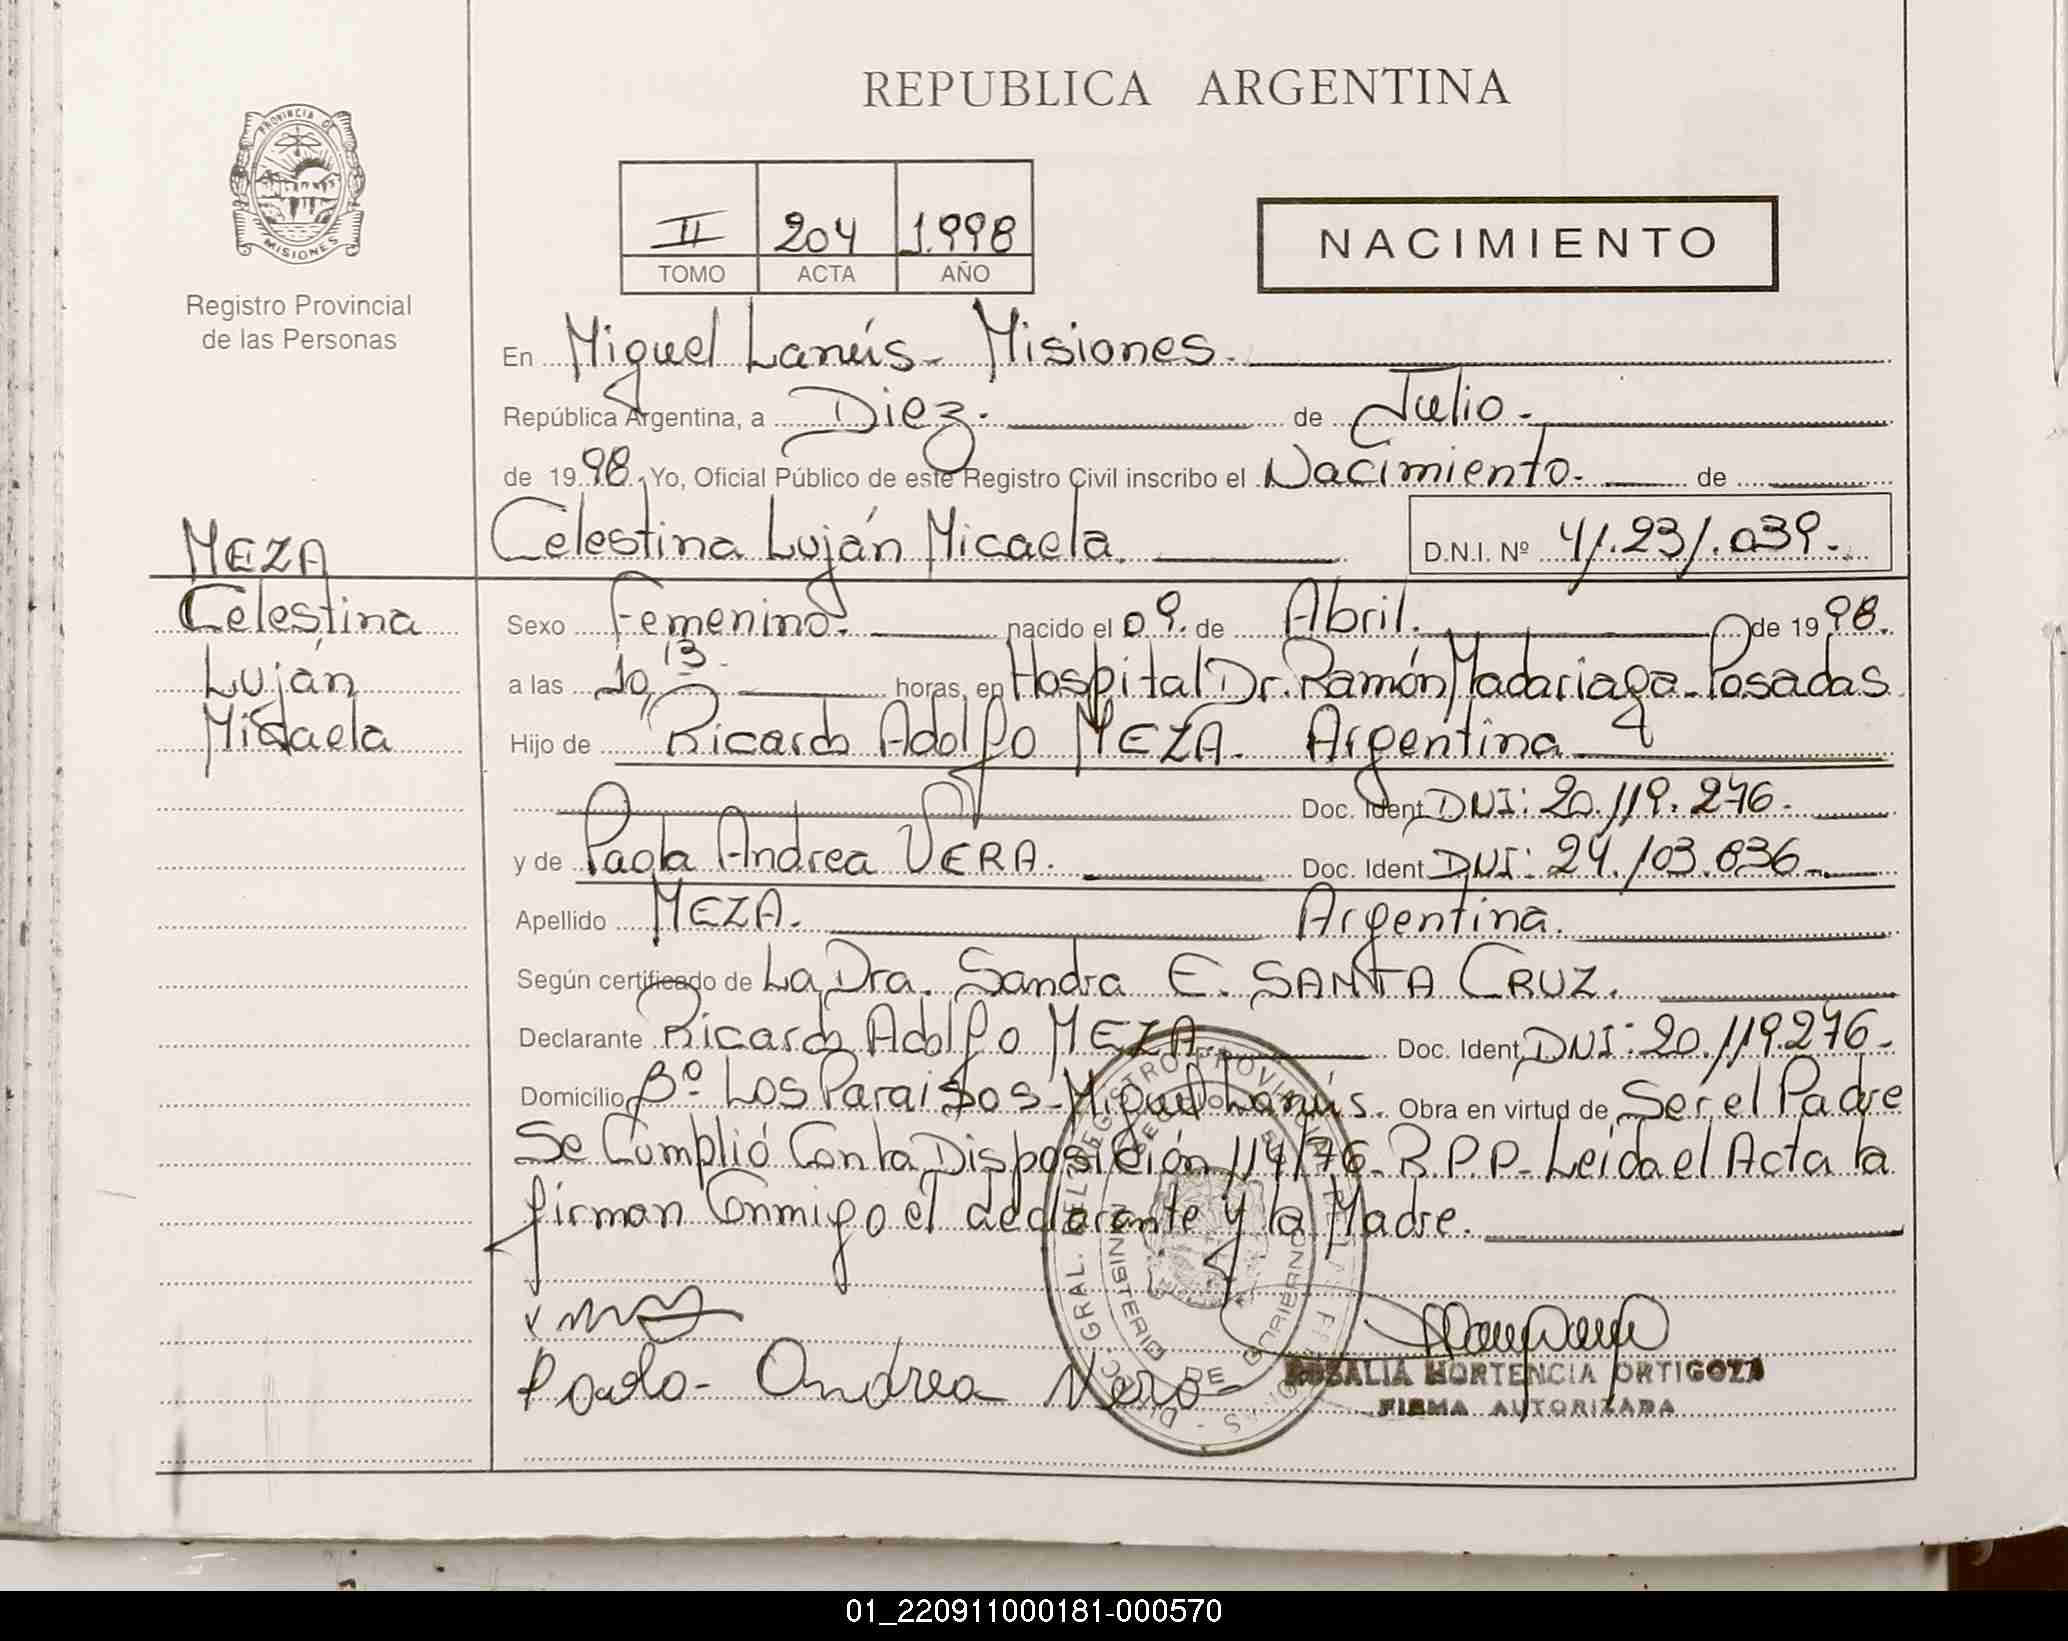 REPUBLICA ARGENTINA
PROVINCIA DE
MISIONES
Registro Provincial
de las Personas
II 204 1.998
TOMO ACTA AÑO
NACIMIENTO
En Miguel Lanús - Misiones.
República Argentina, a Diez. de Julio.
de 1998. Yo, Oficial Público de este Registro Civil inscribo el Nacimiento. de
Celestina Luján Micaela. D.N.I. Nº 41.231.039.
MEZA
Celestina
Luján
Micaela
Sexo Femenino. nacido el 09. de Abril. de 1998.
a las 10,13. horas, en Hospital Dr. Ramón Madariaga - Posadas
Hijo de Ricardo Adolfo MEZA. Argentina
Doc. Ident. DNI: 20.119.276.
y de Paola Andrea VERA. Doc. Ident. DNI: 24.103.836.
Apellido MEZA. Argentina.
Según certificado de La Dra. Sandra E. SANTA CRUZ.
Declarante Ricardo Adolfo MEZA. Doc. Ident. DNI: 20.119.276.
Domicilio Bº Los Paraisos - Miguel Lanús. Obra en virtud de Ser el Padre
Se Cumplió Con la Disposición 114/76 - R.P.P. - Leída el Acta la
firman Conmigo el declarante y la Madre.
Paola Andrea Vera
ROSALIA HORTENCIA ORTIGOZA
FIRMA AUTORIZADA
MINISTERIO DE GOBIERNO
01_220911000181-000570